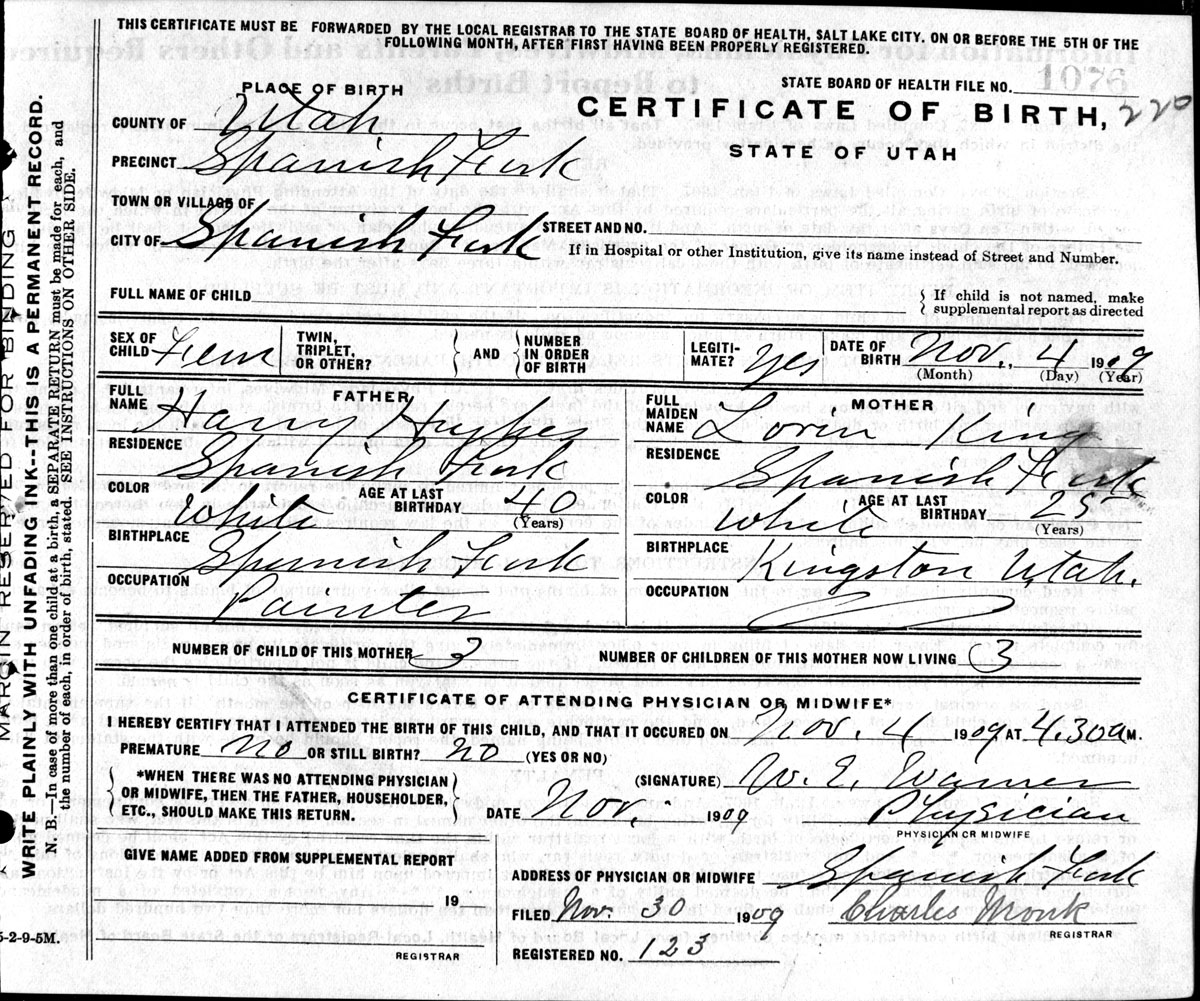 THIS CERTIFICATE MUST BE FORWARDED BY THE LOCAL REGISTRAR TO THE STATE BOARD OF HEALTH, SALT LAKE CITY, ON OR BEFORE THE 5TH OF THE
FOLLOWING MONTH, AFTER FIRST HAVING BEEN PROPERLY REGISTERED.
MARGIN RESERVED FOR BINDING
WRITE PLAINLY WITH UNFADING INK--THIS IS A PERMANENT RECORD.
N. B.—In case of more than one child at a birth, a SEPARATE RETURN must be made for each, and
the number of each, in order of birth, stated. SEE INSTRUCTIONS ON OTHER SIDE.
STATE BOARD OF HEALTH FILE NO. 1076
PLACE OF BIRTH
CERTIFICATE OF BIRTH, 220
STATE OF UTAH
COUNTY OF Utah
PRECINCT Spanish Fork
TOWN OR VILLAGE OF
CITY OF Spanish Fork
STREET AND NO.
If in Hospital or other Institution, give its name instead of Street and Number.
FULL NAME OF CHILD
If child is not named, make
supplemental report as directed
SEX OF CHILD Fem
TWIN, TRIPLET, OR OTHER?
AND
NUMBER IN ORDER OF BIRTH
LEGITI-MATE? Yes
DATE OF BIRTH Nov. 4 1909
(Month) (Day) (Year)
FATHER
FULL NAME Harry
RESIDENCE Spanish Fork
COLOR White AGE AT LAST BIRTHDAY 40
(Years)
BIRTHPLACE Spanish Fork
OCCUPATION Painter
MOTHER
FULL MAIDEN NAME King
RESIDENCE Spanish Fork
COLOR White AGE AT LAST BIRTHDAY 25
(Years)
BIRTHPLACE Kingston Utah.
OCCUPATION
NUMBER OF CHILD OF THIS MOTHER 3 NUMBER OF CHILDREN OF THIS MOTHER NOW LIVING 3
CERTIFICATE OF ATTENDING PHYSICIAN OR MIDWIFE*
I HEREBY CERTIFY THAT I ATTENDED THE BIRTH OF THIS CHILD, AND THAT IT OCCURED ON Nov. 4 1909 AT 4.30a M.
PREMATURE no OR STILL BIRTH? no (YES OR NO)
*WHEN THERE WAS NO ATTENDING PHYSICIAN
OR MIDWIFE, THEN THE FATHER, HOUSEHOLDER,
ETC., SHOULD MAKE THIS RETURN.
(SIGNATURE) W. E. Warner
DATE Nov. 1909 Physician
PHYSICIAN OR MIDWIFE
GIVE NAME ADDED FROM SUPPLEMENTAL REPORT
19
REGISTRAR
5-2-9-5M.
ADDRESS OF PHYSICIAN OR MIDWIFE Spanish Fork
FILED Nov. 30 1909 Charles Monk
REGISTRAR
REGISTERED NO. 123